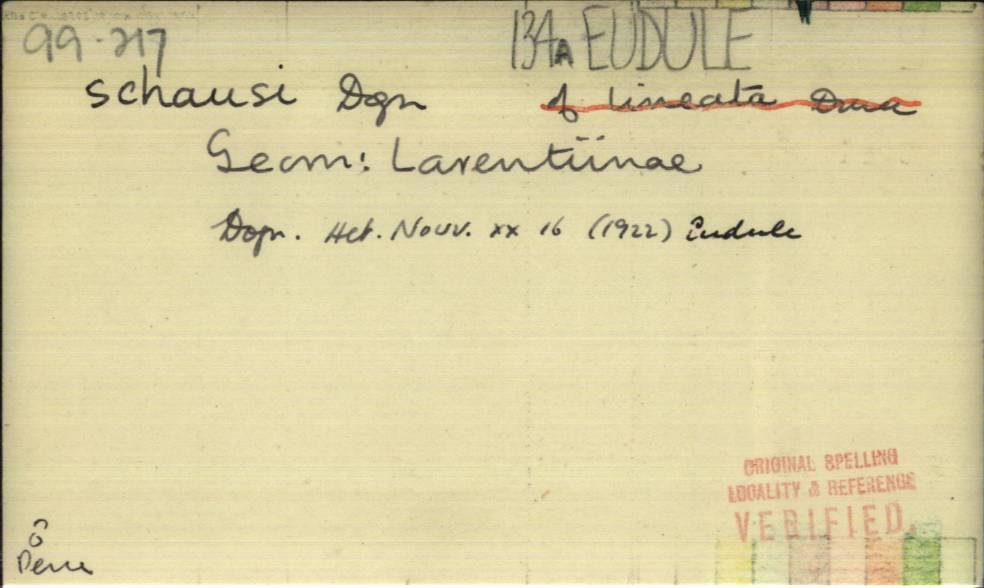 99-217 134A EUDULE
schausi Dgn f lineata Druce
Geom: Larentiinae
Dogn. Het. Nouv. xx 16 (1922) Eudule
ORIGINAL SPELLING
LOCALITY & REFERENCE
VERIFIED.
Peru